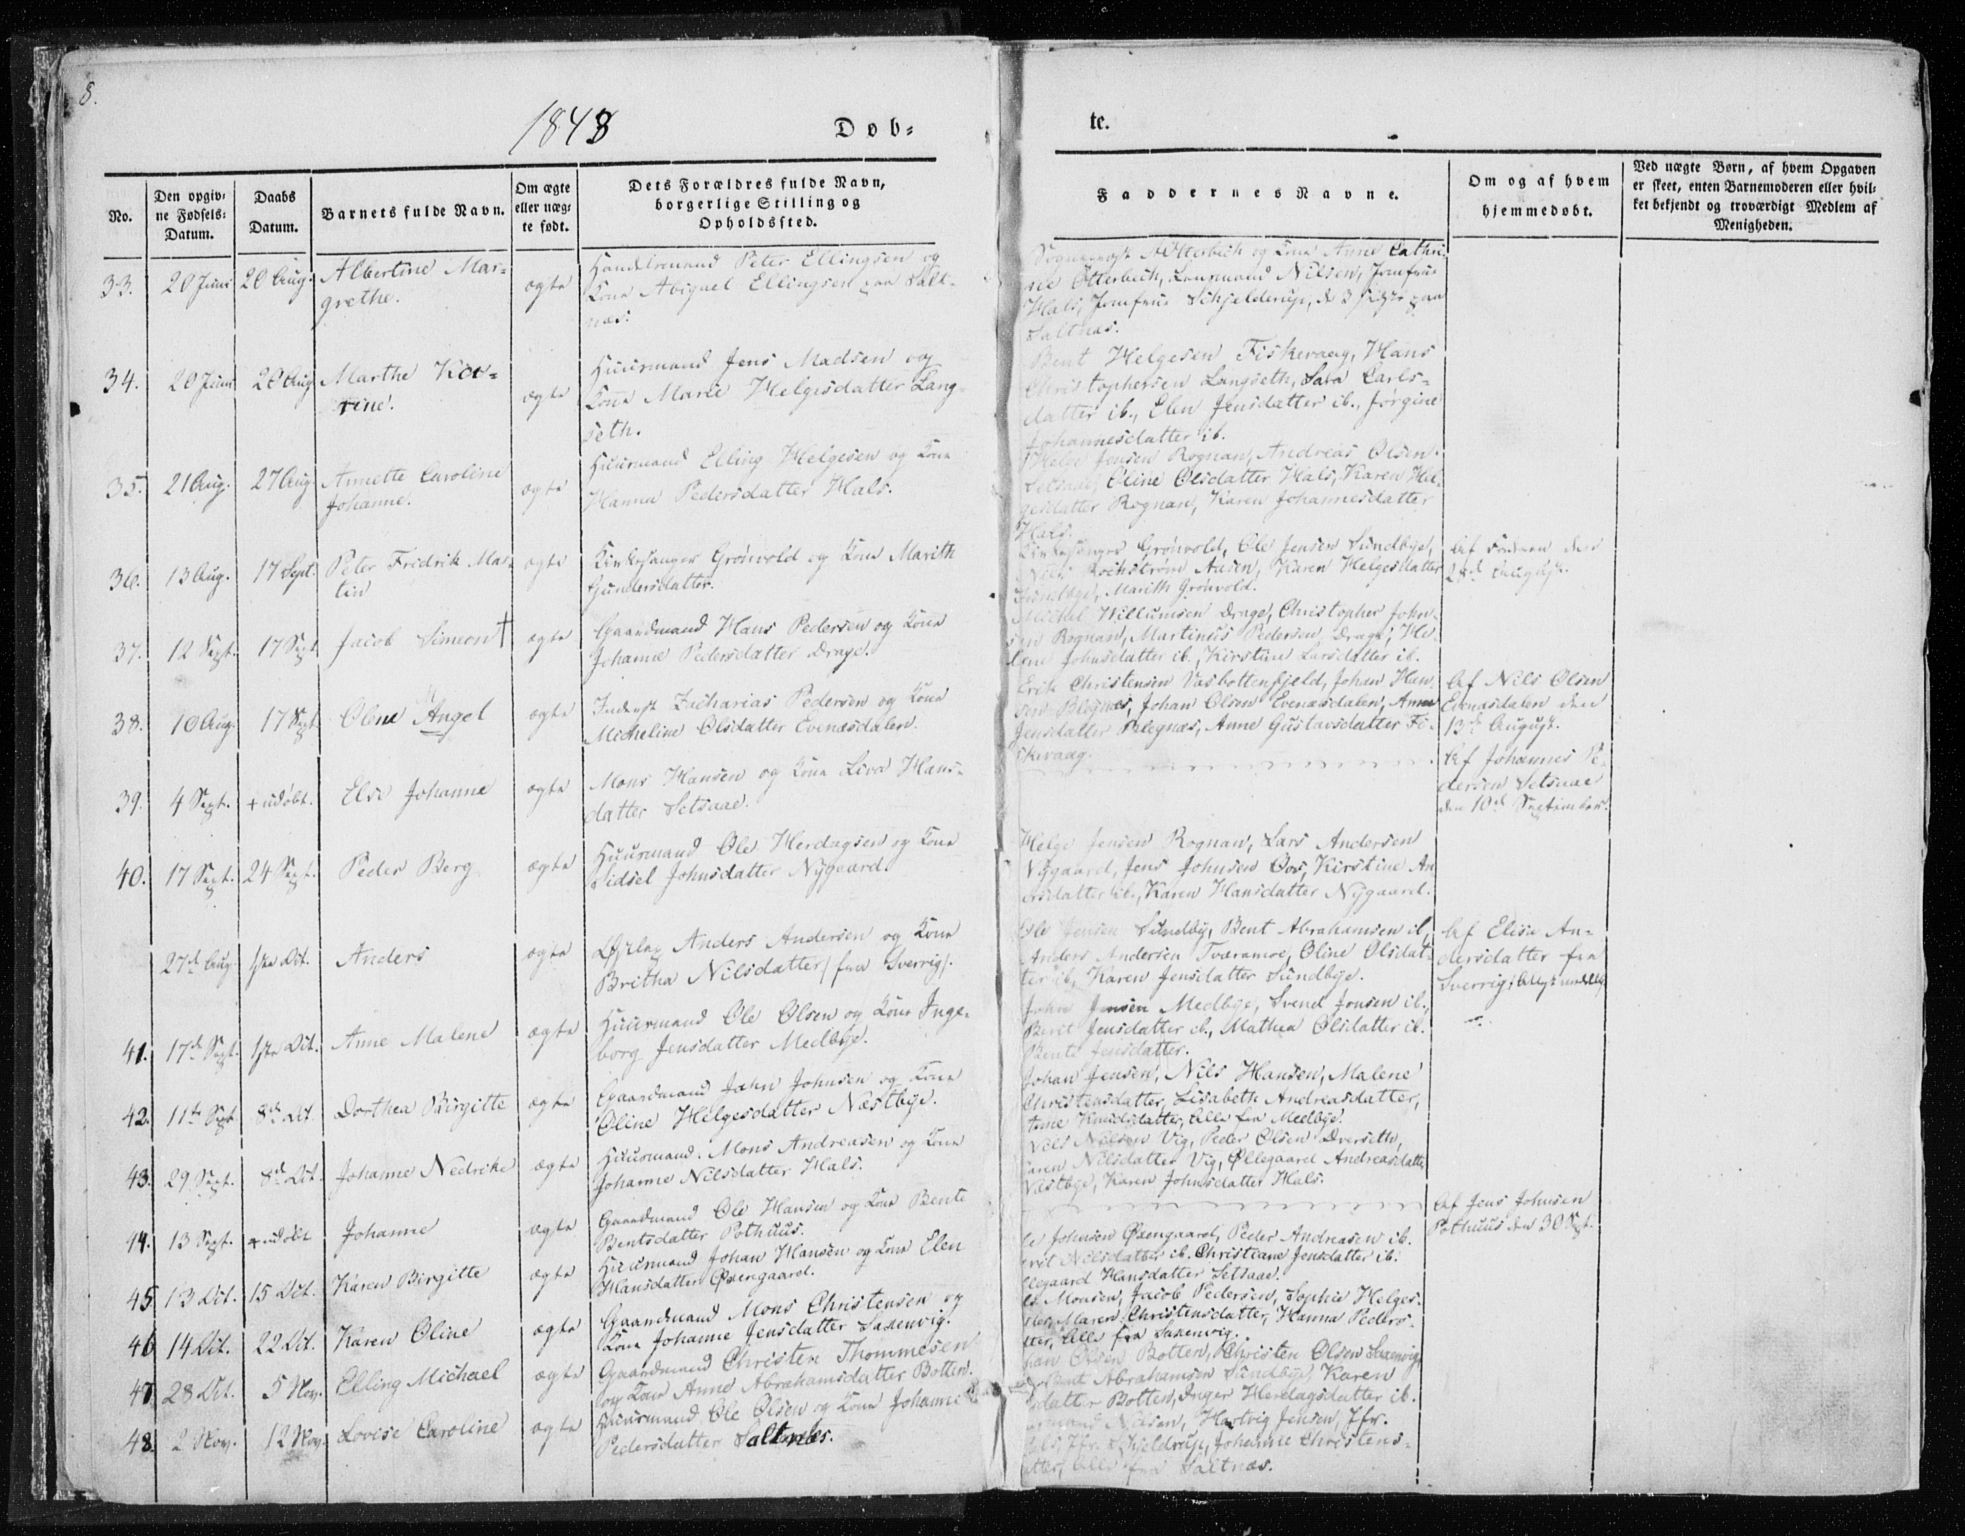 8.
1848
Døb=
te.
No.
Den opgiv=
ne Fødsels=
Datum.
Daabs
Datum.
Barnets fulde Navn.
Om ægte
eller uæg=
te født.
Dets Forældres fulde Navn,
borgerlige Stilling og
Opholdssted.
Faddernes Navne.
Om og af hvem
hjemmedøbt.
Ved uægte Børn, af hvem Opgaven
er skeet, enten Barnemoderen eller hvil=
ket bekjendt og troværdigt Medlem af
Menigheden.
33. 20 Juni 20 Aug. Albertine Mar=
grethe.
ægte
Handelsmand Peter Ellingsen og
Kone Abigael Ellingsen paa Salt=
næs.
Otterbech og Kone Anne Cathri=
ne Otterbech, Lensmand Nilsen, Jomfrue
Hals, Jomfrue Schjelderup, de 3 paa
Saltnæs.
34. 20 Juni 20 Aug. Marthe Kar=
rine.
ægte
Huusmand Jens Madsen og
Kone Marie Helgesdatter Lang=
seth.
Bent Helgesen Fiskevaag, Hans
Christophersen Langseth, Sara Carls=
datter ib., Elen Jensdatter ib., Jørgine
Johannesdatter ib.
35. 21 Aug. 27 Aug. Annette Caroline
Johanne.
ægte
Huusmand Elling Helgesen og Kone
Hanna Pedersdatter Hals.
Helge Jensen Rognan, Andreas Olsen
Setsaae, Oline Olsdatter Hals, Karen Hel=
gesdatter Rognan, Karen Johannesdatter
Hals.
36. 13 Aug. 17 Sept. Peter Fredrik Mar=
tin
ægte
Kirkesanger Grønvold og Kone Marith
Gundersdatter.
Kirkesanger Grønvold, Ole Jensen Sundbye,
Nils Aasen, Karen Helgesdatter
Sundbye, Marith Grønvold.
Af Faderen den
28de August.
37. 12 Sept. 17 Sept. Jacob Simeon †
ægte
Gaardmand Hans Pedersen og Kone
Johanne Pedersdatter Drage.
Michel Willumsen Drage, Christopher John=
sen Rognan, Martinus Pedersen Drage, He=
lene Johnsdatter ib., Kirstine Larsdatter ib.
38. 10 Aug. 17 Sept. Olene Angel
ægte
Inderst Zacharias Pedersen og Kone
Micheline Olsdatter Evenæsdalen.
Erik Christensen Vasbottenfjeld, Johan Han=
sen, Johan Olsen Evenæsdalen, Anne
Jensdatter, Anne Gustavsdatter Fi=
skevaag.
Af Nils Olsen
Evenæsdalen den
13de August.
39. 4 Sept. + udøbt. Else Johanne
ægte
Mons Hansen og Kone Liva Hans=
datter Setsaae.
Af Johannes Pe=
dersen Setsaae
den 10de September.
40. 17 Sept. 24 Sept. Peder Berg
ægte
Huusmand Ole Herdagsen og Kone
Sidsel Johnsdatter Nygaard.
Helge Jensen Rognan, Lars Andersen
Nygaard, Jens Johnsen Oos, Kirstine An=
dersdatter ib., Karen Hansdatter Nygaard.
27de Aug. 1ste Oct. Anders
ægte
Anders Andersen og Kone
Britha Nilsdatter (fra Sverrig).
Ole Jensen Sundby, Bent Abrahamsen ib.,
Anders Andersen Tværamoe, Oline Olsdat=
ter ib., Karen Jensdatter Sundbye.
Af Elisa An=
dersdatter fra
Sverrig
41. 17de Sept. 1ste Oct. Anne Malene
ægte
Huusmand Ole Olsen og Kone Inge=
borg Jensdatter Medbye.
John Jensen Medbye, Svend Jonsen ib.,
Berit Jensdatter ib., Mathea Olsdatter ib.
Bente Jensdatter.
42. 11te Sept. 8de Oct. Dorthea Birgitte
ægte
Gaardmand John Johnsen og Kone
Oline Helgesdatter Næstbye.
Johan Jensen, Nils Hansen, Malene
Christensdatter, Lisabeth Andreasdatter,
Anne Knudsdatter, Alle fra Medbye.
43. 29 Sept. 8de Oct. Johanne Nedrike
ægte
Huusmand Mons Andreasen og Kone
Johanne Nilsdatter Hals.
Nils Nilsen Vig, Peder Olsen Dverseth,
Karen Nilsdatter Vig, Øllegaard Andreasdatter
Næstbye, Karen Johnsdatter Hals.
44. 13 Sept. + udøbt Johanne
ægte
Gaardmand Ole Hansen og Kone Bente
Bentsdatter Pothuus.
Af Jens Johnsen
Pothuus den 30 Sept.
45. 13 Oct. 15 Oct. Karen Birgitte
ægte
Huusmand Johan Hansen og Kone Elen
Hansdatter Øxengaard.
Johnsen Øxengaard, Peder Andreasen ib.
Nilsdatter ib. Christiane Jensdatter ib.
Hansdatter Setsaae.
46. 14 Oct. 22 Oct. Karen Oline
ægte
Gaardmand Mons Christensen og
Kone Johanne Jensdatter Saxenvig.
Monsen, Jacob Pedersen, Sophie Helges=
Maren Christensdatter, Hanna Peders=
Alle fra Saxenvig.
47. 28 Oct. 5 Nov. Elling Michael
ægte
Gaardmand Christen Thommesen
og Kone Anne Abrahamsdatter Botten.
Olsen Botten, Christen Olsen Saxenvig
Bent Abrahamsen Sundbye, Karen
datter Botten, Inger Herdagsdatter ib.
48. 2 Nov. 12 Nov. Lovise Caroline
ægte
Huusmand Ole Olsen og Kone Johanne
Pedersdatter Saltnæs.
Nilsen, Hartvig Jensen, Jfr.
Hals, Jfr. Schjeldrup, Johanne Christens=
datter, Alle fra Saltnæs.